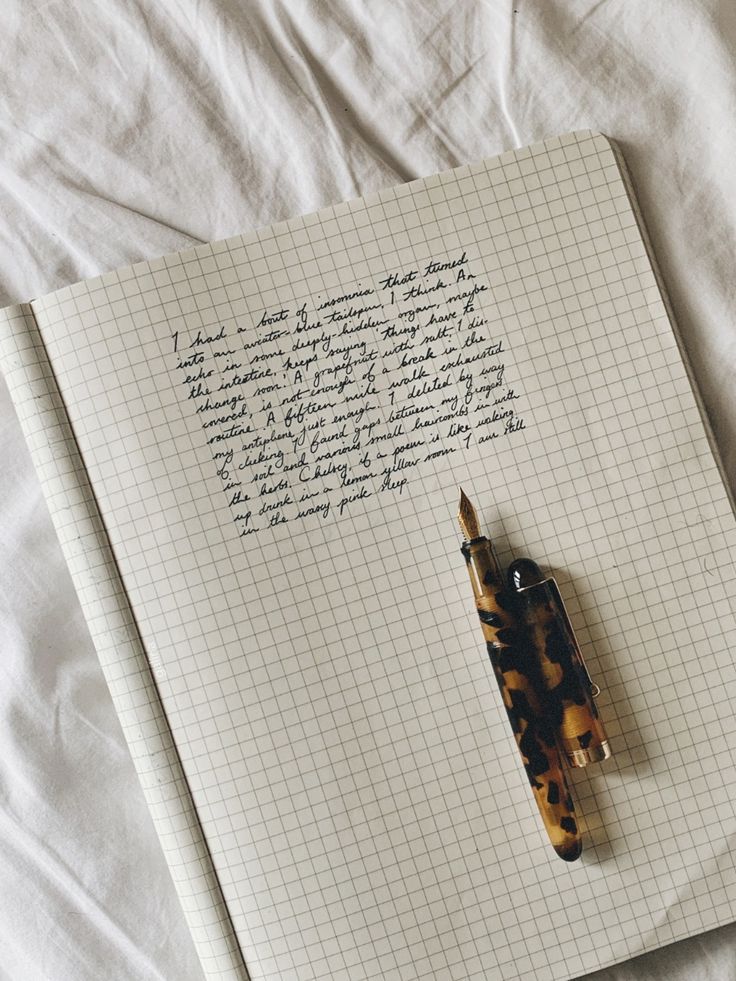 I had a bout of insomnia that turned
into an aviator-blue tailspin, I think. An
echo in some deeply-hidden organ, maybe
the intestine, keeps saying things have to
change soon. A grapefruit with salt, I dis-
covered, is not enough of a break in the
routine. A fifteen mile walk exhausted
my antiphene just enough. I deleted by way
of clicking. I found gaps between my fingers
in soil and various small haircombs in with
the herbs. Chelsey, if a poem is like waking
up drunk in a lemon yellow room I am still
in the waxy pink sleep.